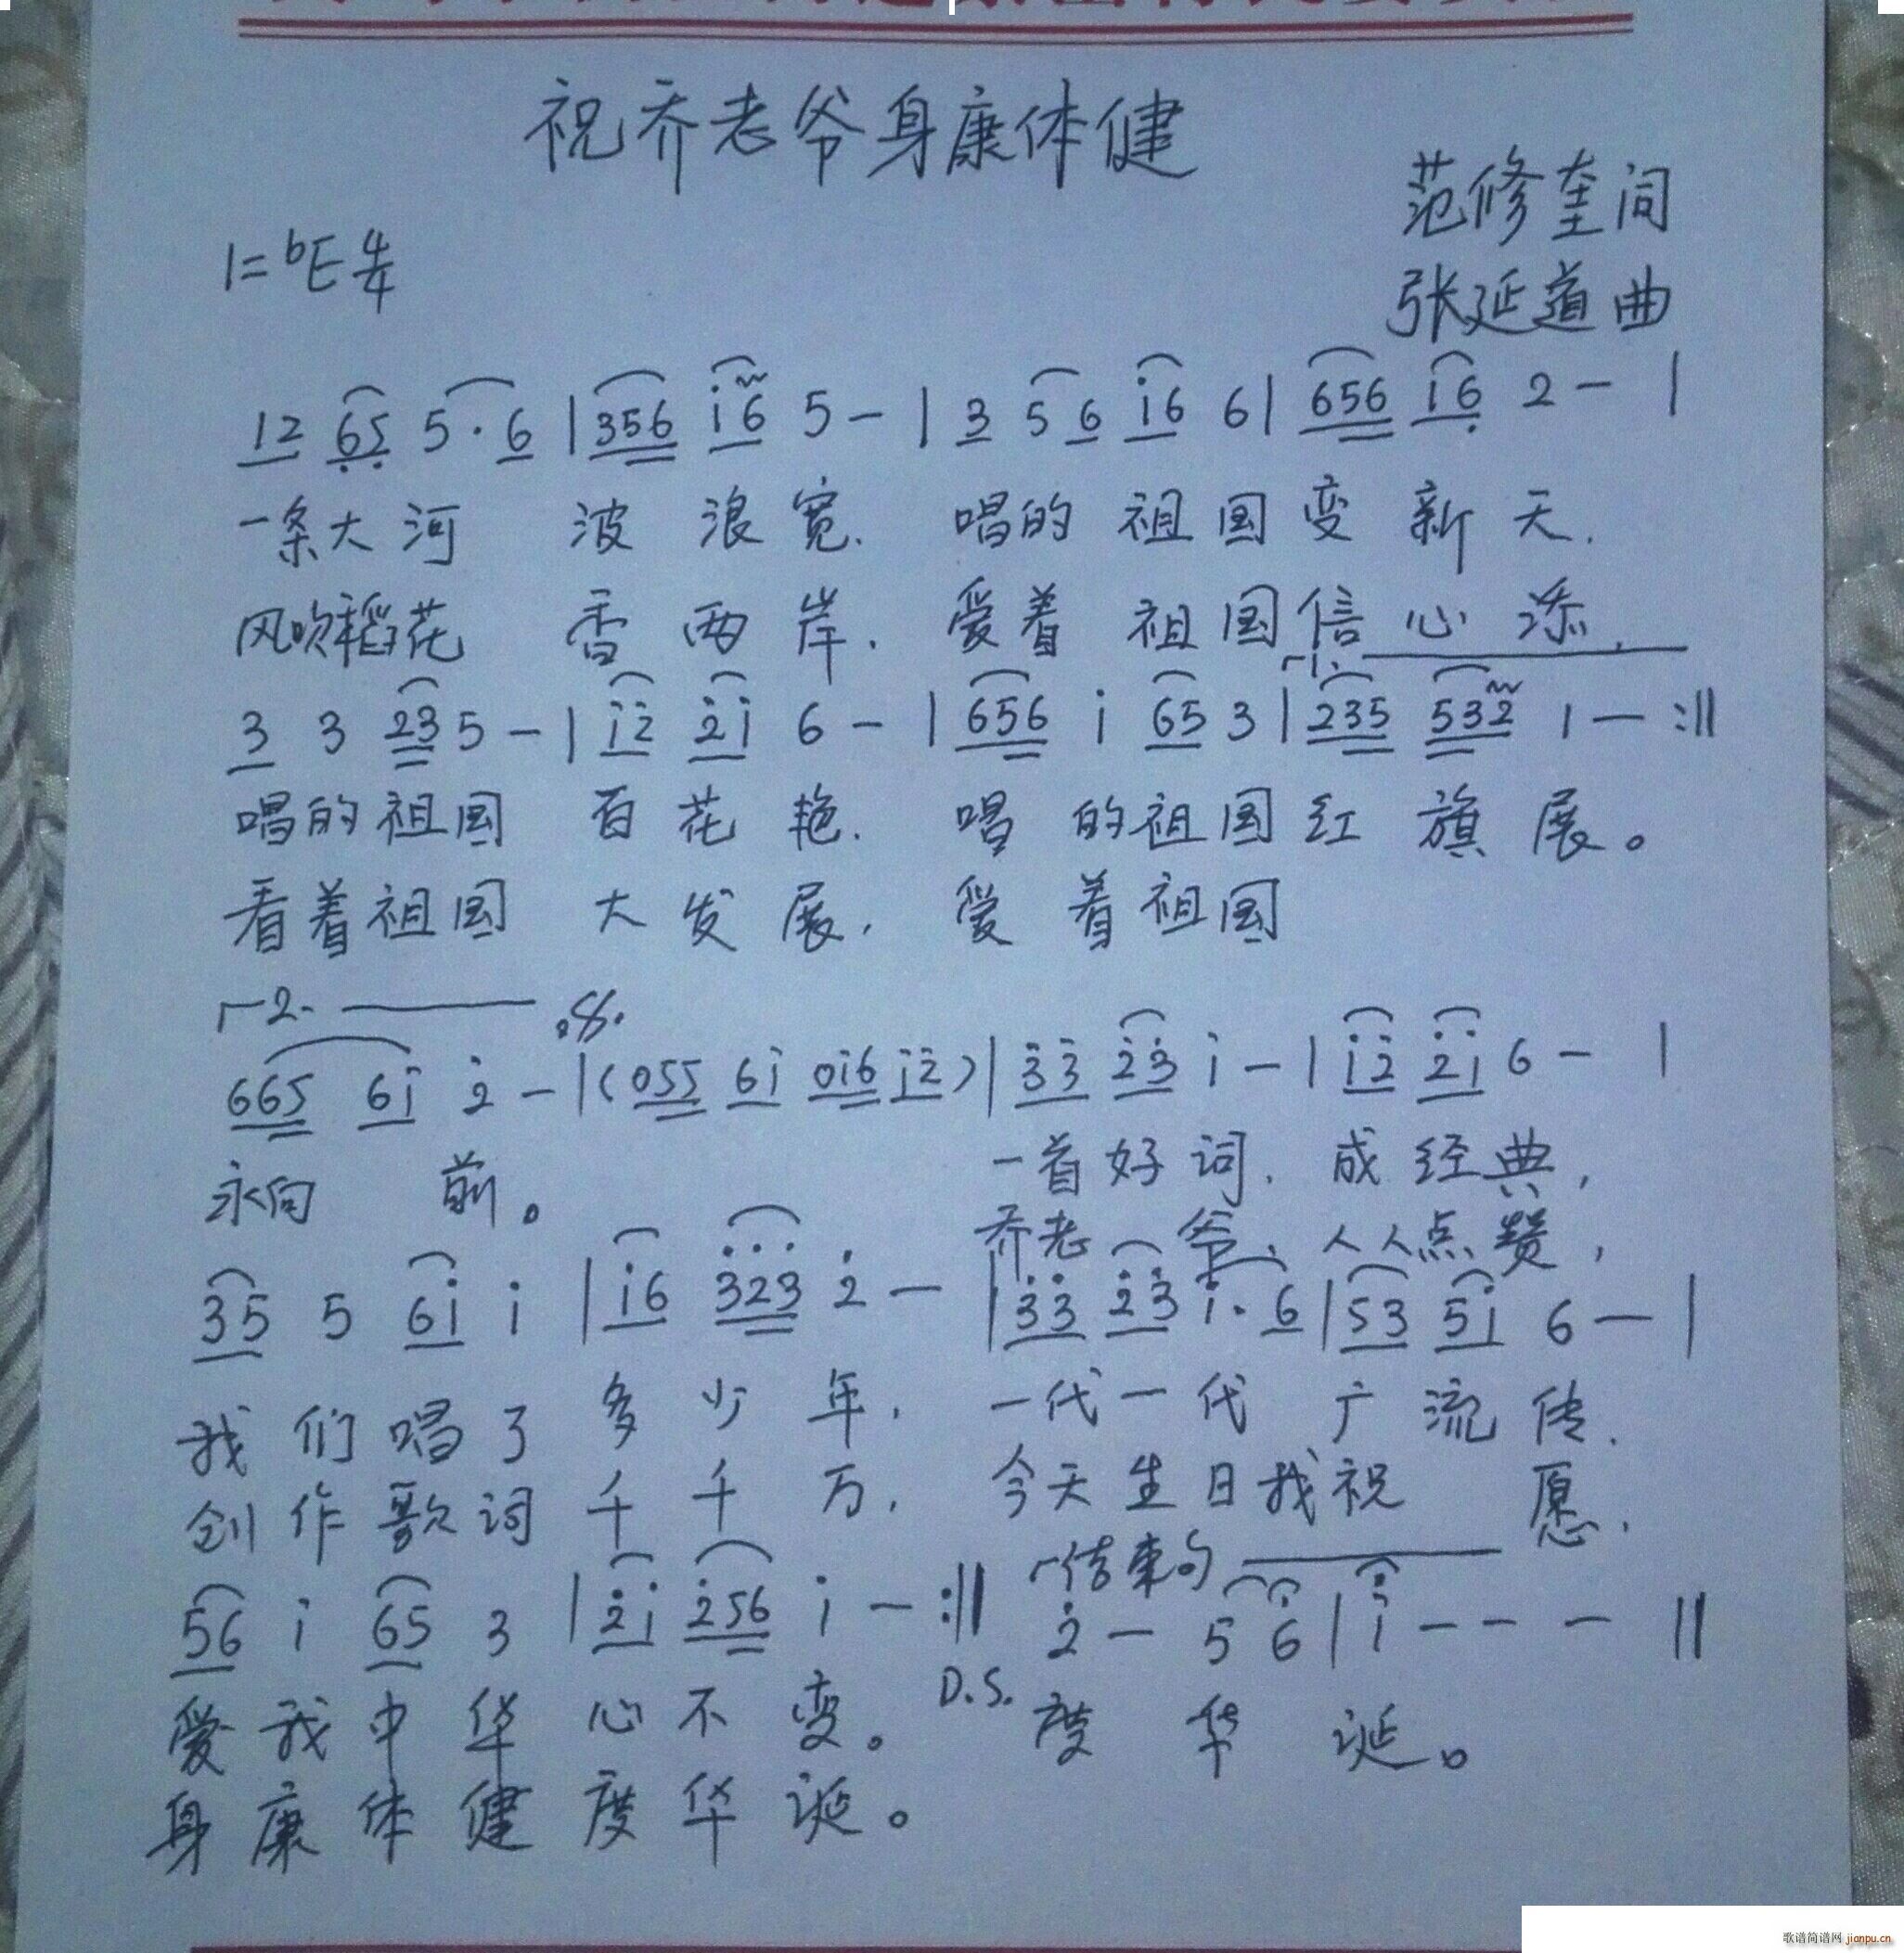 祝乔老爷身康体健
范修奎词
1=ᵇE 4/4
张延道曲
12 65 5·6 | 356 i6 5 — | 3 5 6 i6 6 | 656 i6 2 — |
一条大河 波浪宽. 唱的祖国变新天.
风吹稻花 香两岸. 爱着祖国信心添.
┌1.
3 3 23 5 — | i2 2i 6 — | 656 i 65 3 | 235 532 1 — :||
唱的祖国 百花艳. 唱的祖国红旗展。
看着祖国 大发展. 爱着祖国
┌2. 𝄋
665 6i 2 — | (055 6i 0i6 i2) | 33 23 i — | i2 2i 6 — |
永向 前。 一首好词, 成经典,
乔老爷, 人人点赞,
35 5 6i i | i6 323 2 — | 33 23 i·6 | 53 5i 6 — |
我们唱了多少年. 一代一代广流传.
创作歌词千千万. 今天生日我祝愿.
┌结束句
56 i 65 3 | 2i 256 i — :|| 2 — 5 6 | i — — — ||
D.S.
爱我中华心不变。 度华诞。
身康体健度华诞。
歌谱简谱网 jianpu.cn